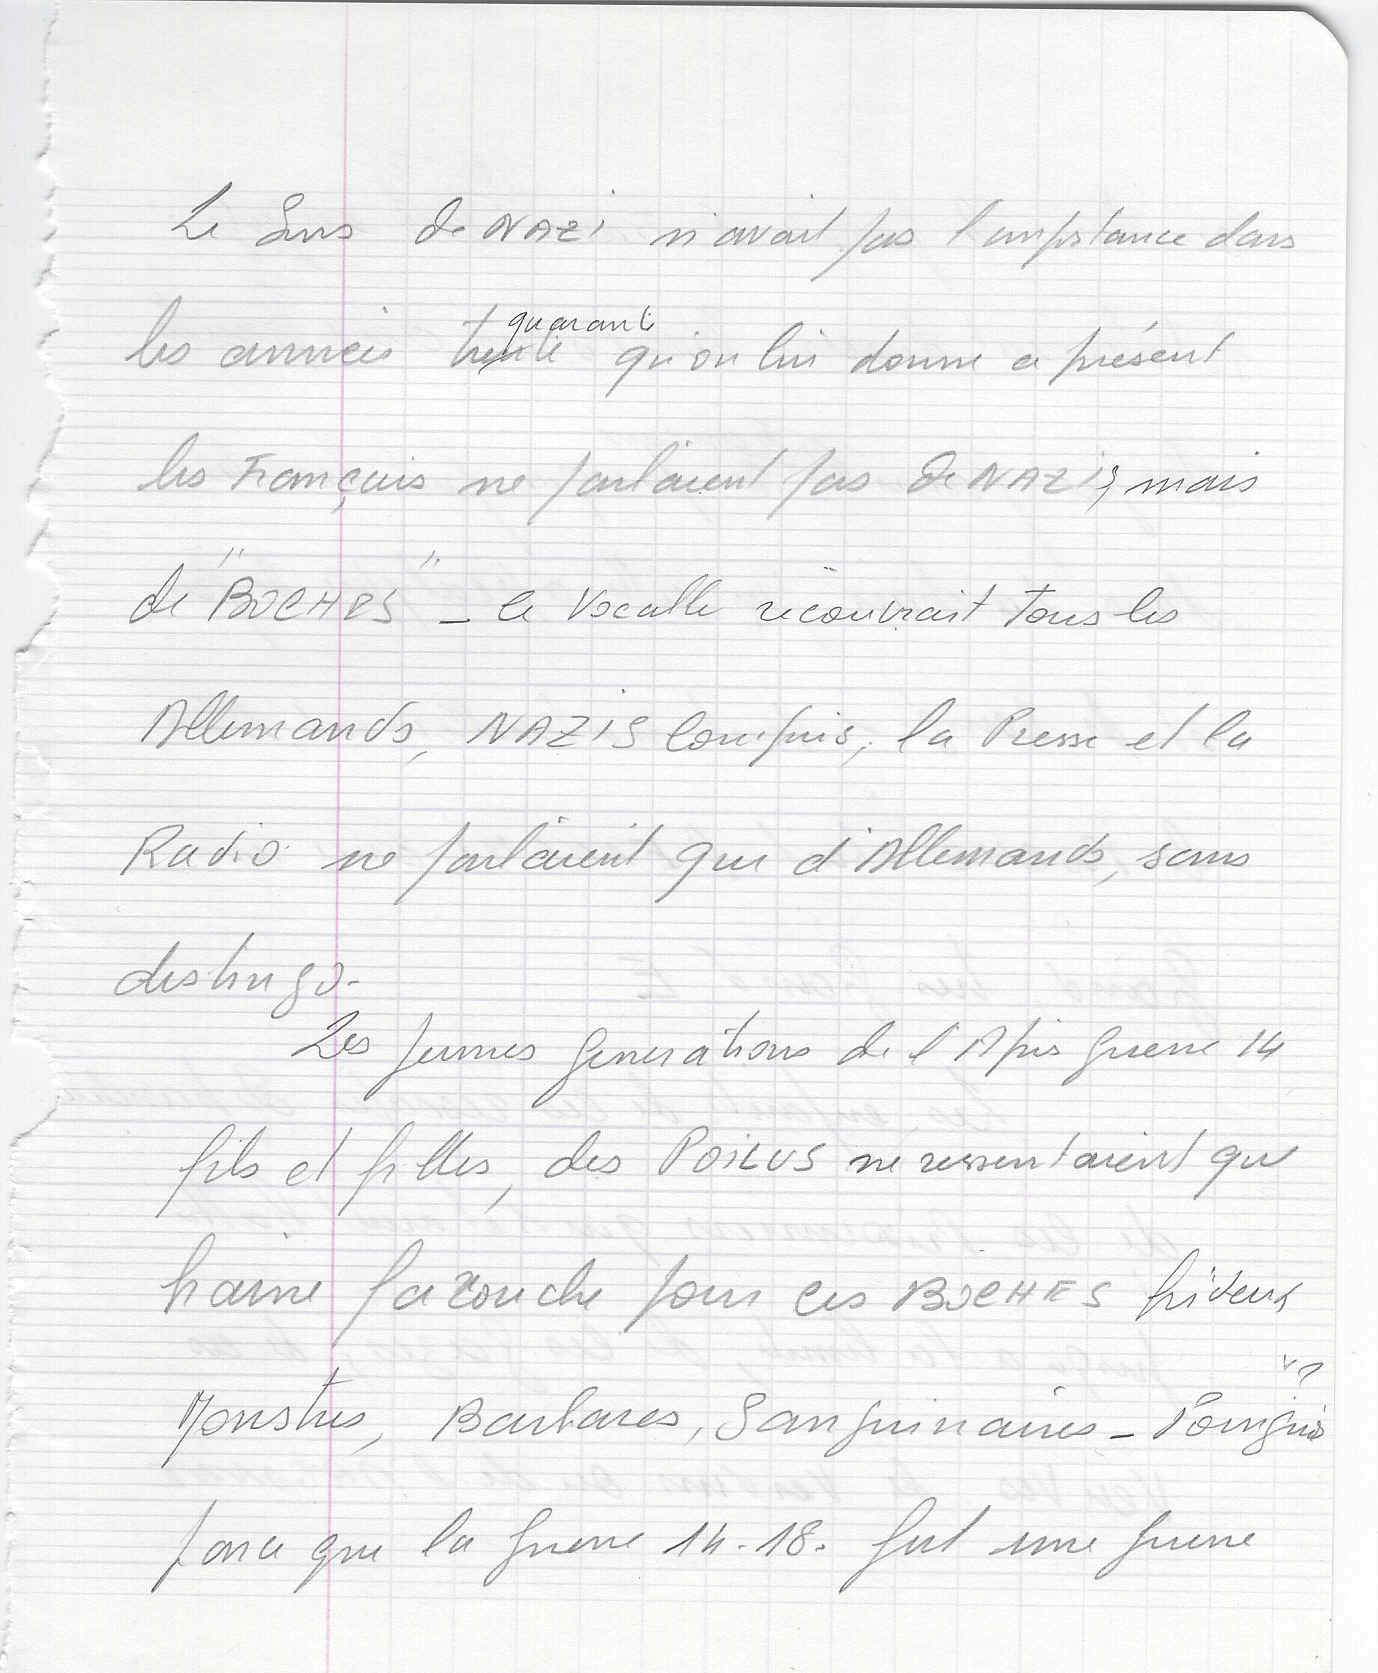 Le Sens de NAZI n'avait pas l'importance dans
quarante
les années trente qu'on lui donne a présent
les Français ne parlaient pas de NAZIS, mais
de "BOCHES" _ ce Vocable recouvrait tous les
Allemands, NAZIS compris, la Presse et la
Radio ne parlaient que d'Allemands, sans
distingo.
Les jeunes générations de l'Après guerre 14
fils et filles, des POILUS ne ressentaient que
haine farouche pour ces BOCHES hideux
Monstres, Barbares, Sanguinaires _ Pourquoi ?
parce que la guerre 14-18. fut une guerre